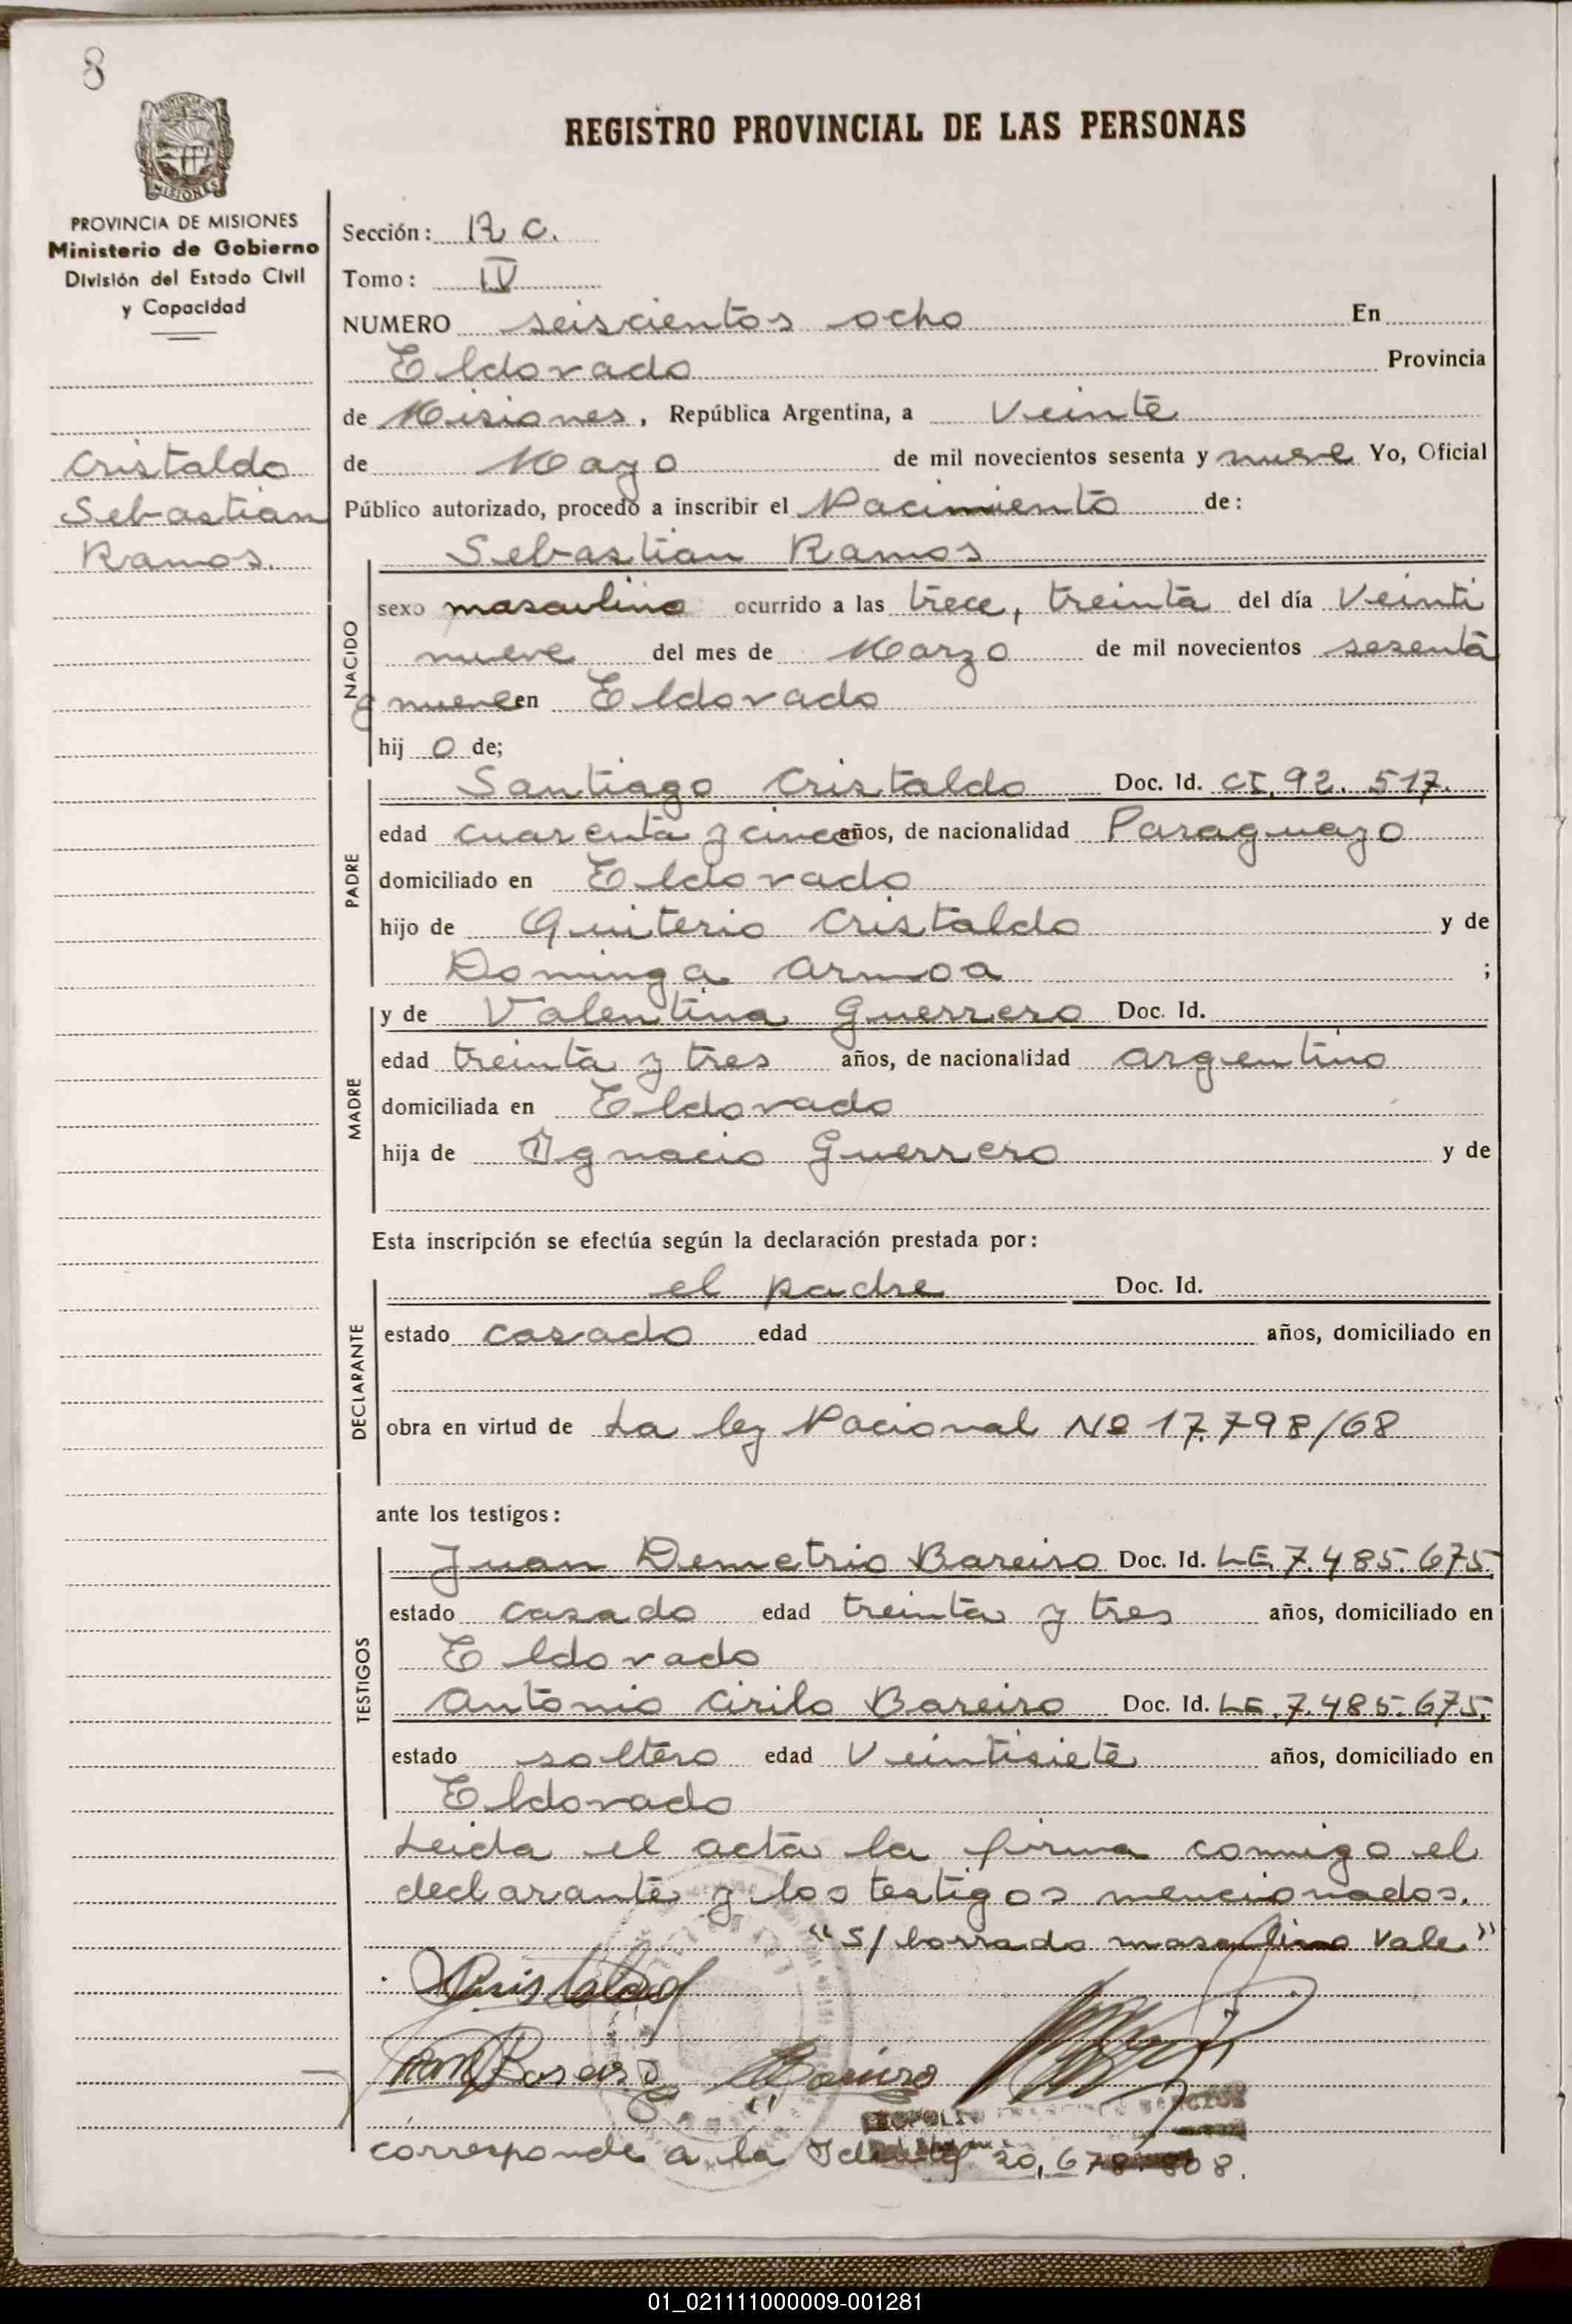 8
REGISTRO PROVINCIAL DE LAS PERSONAS
PROVINCIA DE MISIONES
Ministerio de Gobierno
División del Estado Civil
y Capacidad
Cristaldo
Sebastian
Ramos.
Sección: R C.
Tomo: IV
NUMERO seiscientos ocho En
Eldorado Provincia
de Misiones, República Argentina, a Veinte
de Mayo de mil novecientos sesenta y nueve Yo, Oficial
Público autorizado, procedo a inscribir el Nacimiento de:
Sebastian Ramos
NACIDO
sexo masculino ocurrido a las trece, treinta del día Veinti
nueve del mes de Marzo de mil novecientos sesenta
y nueve en Eldorado
hij o de;
Santiago Cristaldo Doc. Id. CI. 92. 517.
PADRE
edad cuarenta y cinco años, de nacionalidad Paraguayo
domiciliado en Eldorado
hijo de Quiterio Cristaldo y de
Dominga Armoa ;
y de Valentina Guerrero Doc. Id.
MADRE
edad treinta y tres años, de nacionalidad argentino
domiciliada en Eldorado
hija de Ignacio Guerrero y de
Esta inscripción se efectúa según la declaración prestada por:
el padre Doc. Id.
DECLARANTE
estado casado edad años, domiciliado en
obra en virtud de La ley Nacional Nº 17.798/68
ante los testigos:
Juan Demetrio Bareiro Doc. Id. LE. 7.485.675
TESTIGOS
estado casado edad treinta y tres años, domiciliado en
Eldorado
Antonio Cirilo Bareiro Doc. Id. LE. 7.485.675.
estado soltero edad Veintisiete años, domiciliado en
Eldorado
Leida el acta la firma conmigo el
declarante y los testigos mencionados.
"S/ borrado masculino Vale"
Cristaldo
Bareiro
corresponde a la 20,678.808.
01_021111000009-001281